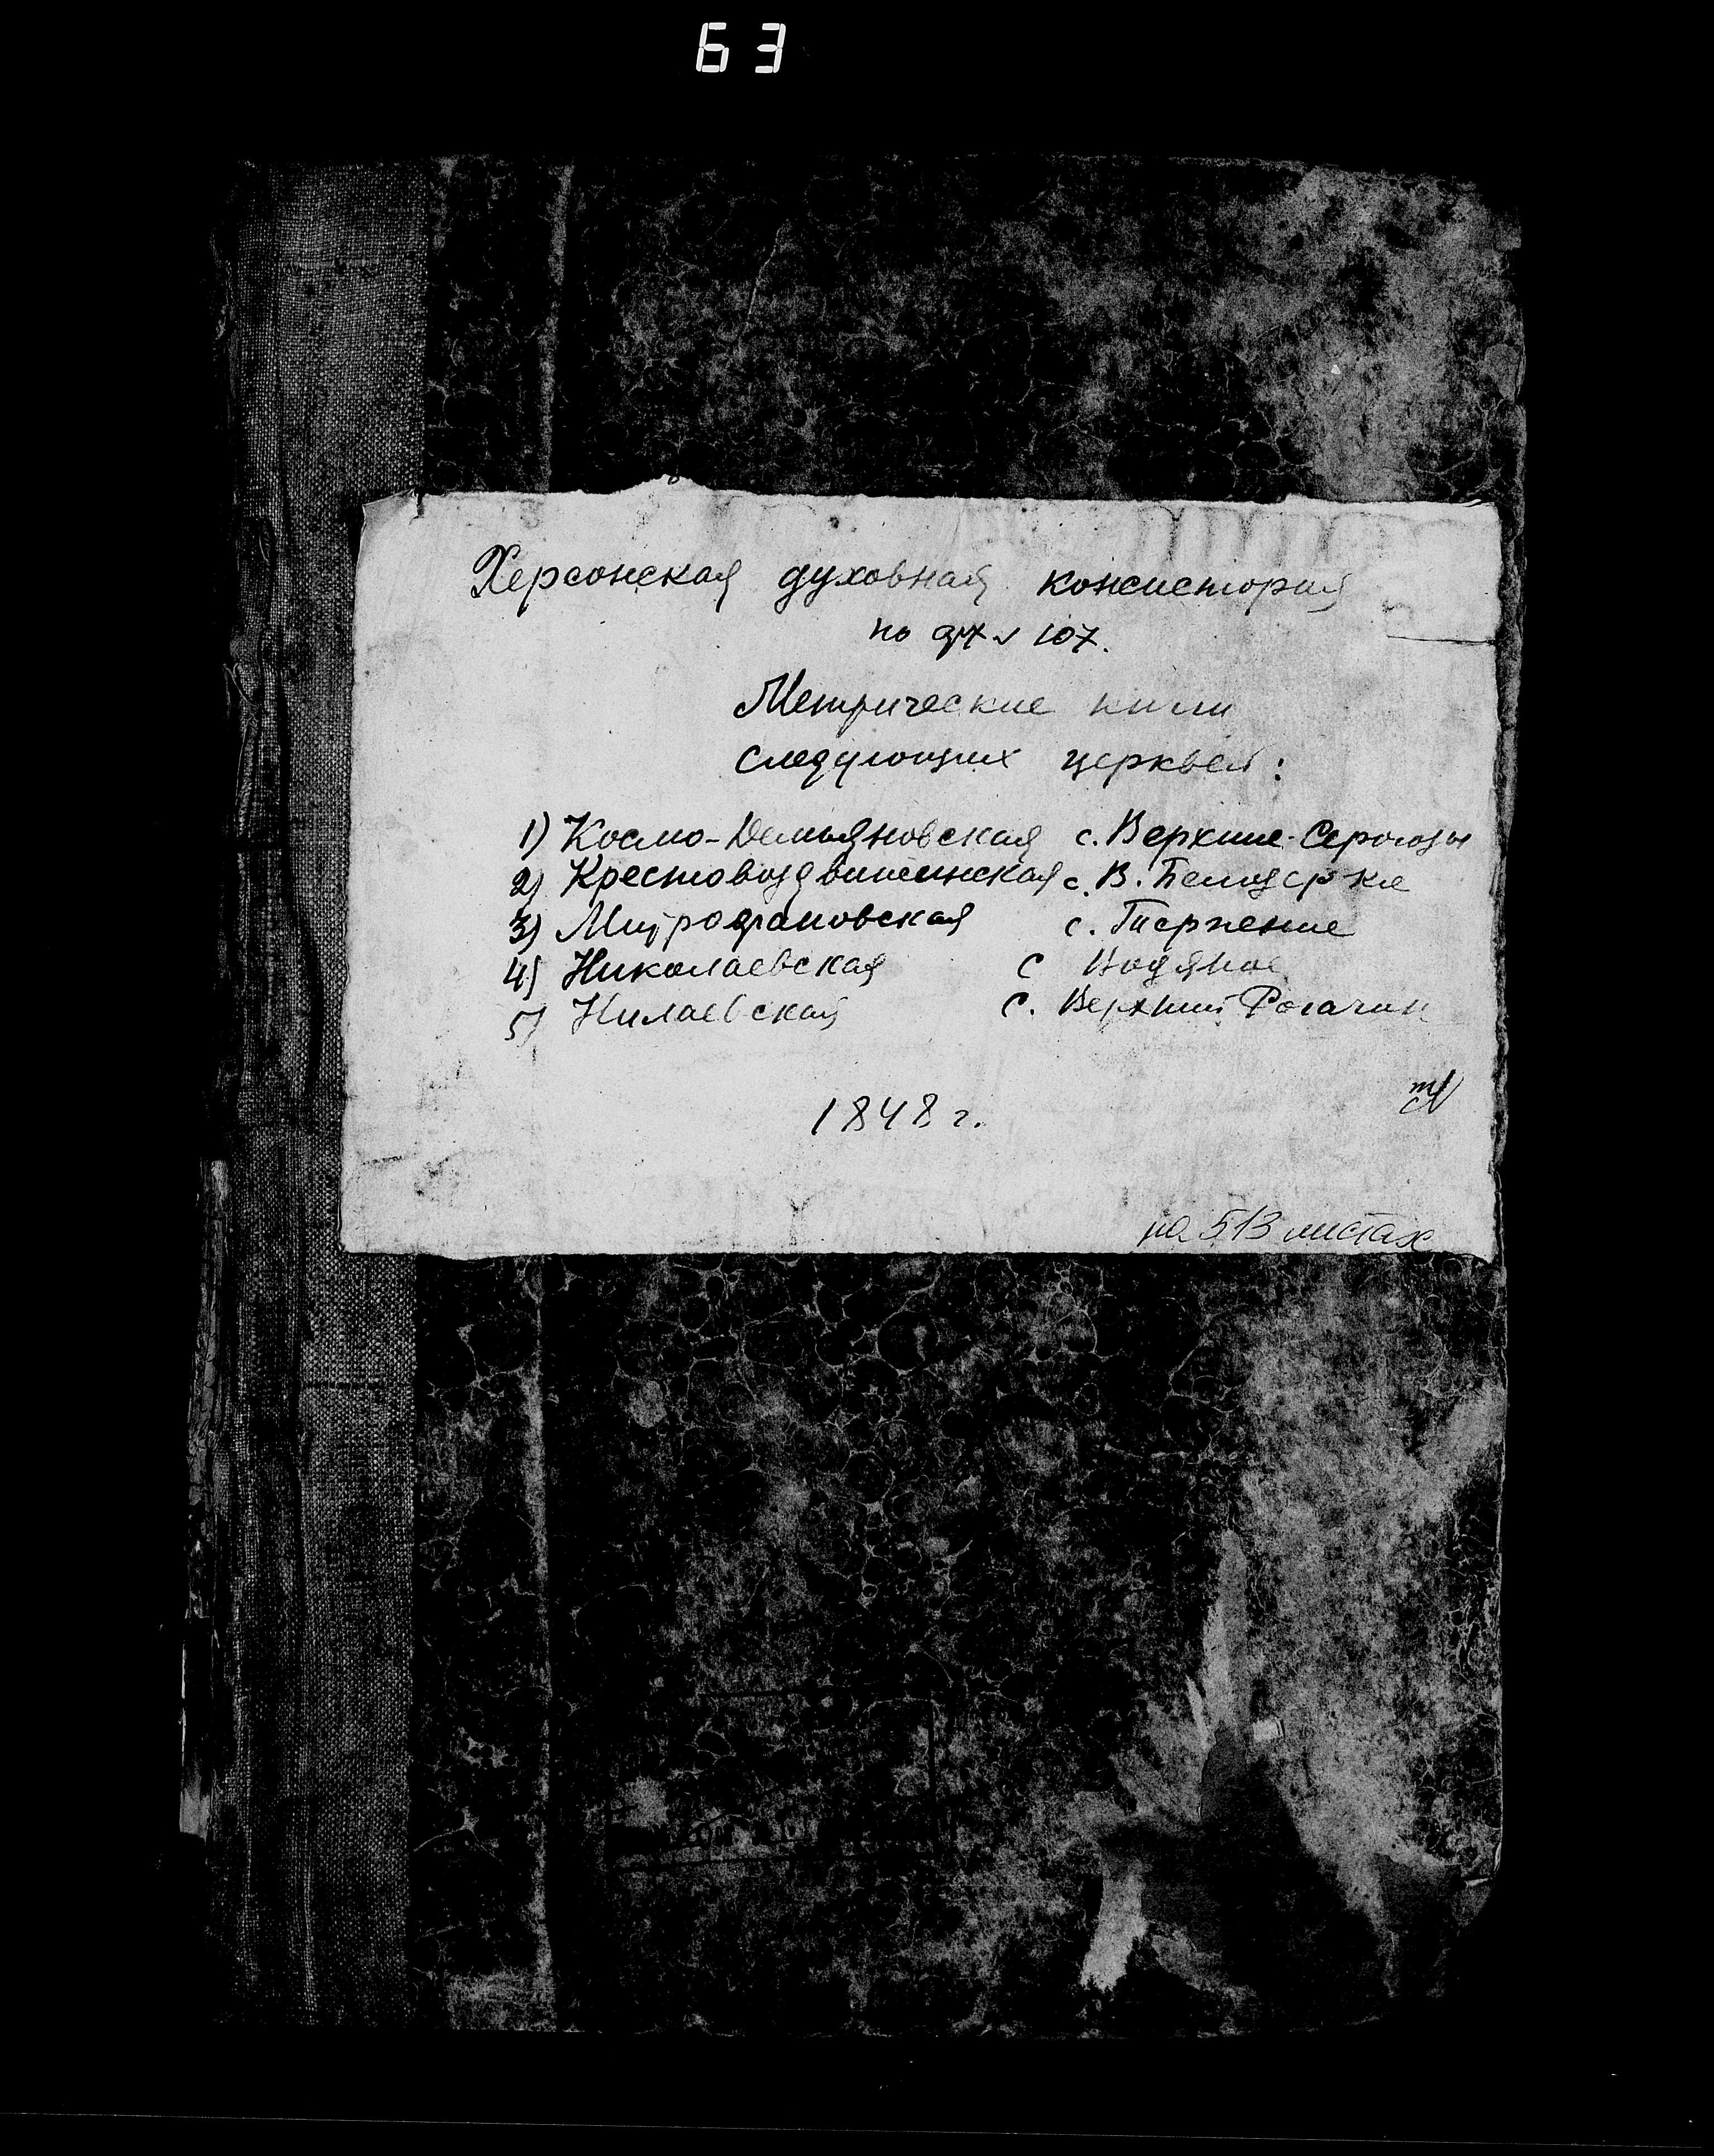 63
Херсонская духовная консистория
по 107.
Метрические книги
следующих церквей:
1) Космо-Демьяновская с. Верхние-Серогозы
2) Крестовоздвиженская с. В. Белозерка
3) Митрофановская с. Терпение
4) Николаевская с Водяное
5) Нилаевская с. Верхний Рогачик
1848 г.
на 513 листах